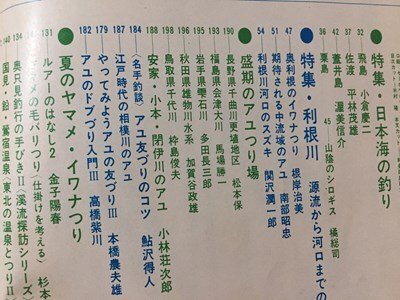 特集・日本海の釣り
32 飛島 小倉慶二
42 佐渡 平林茂雄
37 冠井島 渥美信介
36 粟島
45 山陰のシロギス 橘総司
特集・利根川 源流から河口までの
47 奥利根のイワナつり 根岸治美
51 期待される中流域のアユ 南部昭忠
54 利根川河口のスズキ 関沢潤一郎
盛期のアユつり場
190 長野県千曲川更埴地区 松本保
193 福島県会津大川 馬場勝一
195 岩手県雫石川 多田長三郎
197 秋田県雄物川水系 加賀谷政雄
188 鳥取県千代川 枠島俊夫
192 安家・小本・閉伊川のアユ 小林荘次郎
184 〈名手釣談〉アユ友づりのコツ 鮎沢得人
187 江戸時代の相模川のアユ
179 やってみようアユの友づりIII 本橋農夫雄
182 アユのドブづり入門III 高橋紫川
夏のヤマメ・イワナつり
131 ルアーのはなし2 金子陽春
ヤマメの毛バリつり〈仕掛けを考える〉 杉本
134 奥只見釣行の手びきII〈溪流探訪シリーズ
140 国見・鉛・鶯宿温泉〈東北の温泉とつりII